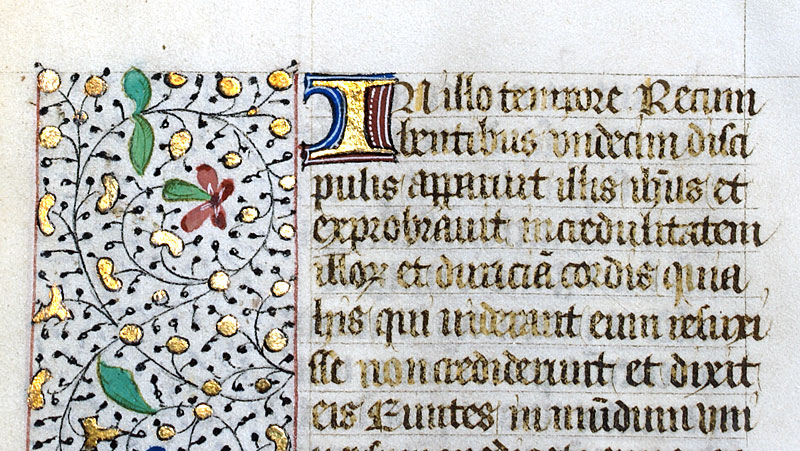 IN illo tempore Recum
bentibus vndecim disci
pulis apparuit illis ih̄us et
exprobrauit incredulitatem
illoꝝ et duriciā cordis quia
his qui uiderant eum resurxi
sse non crediderunt et dixit
eis Euntes in mūdum vni